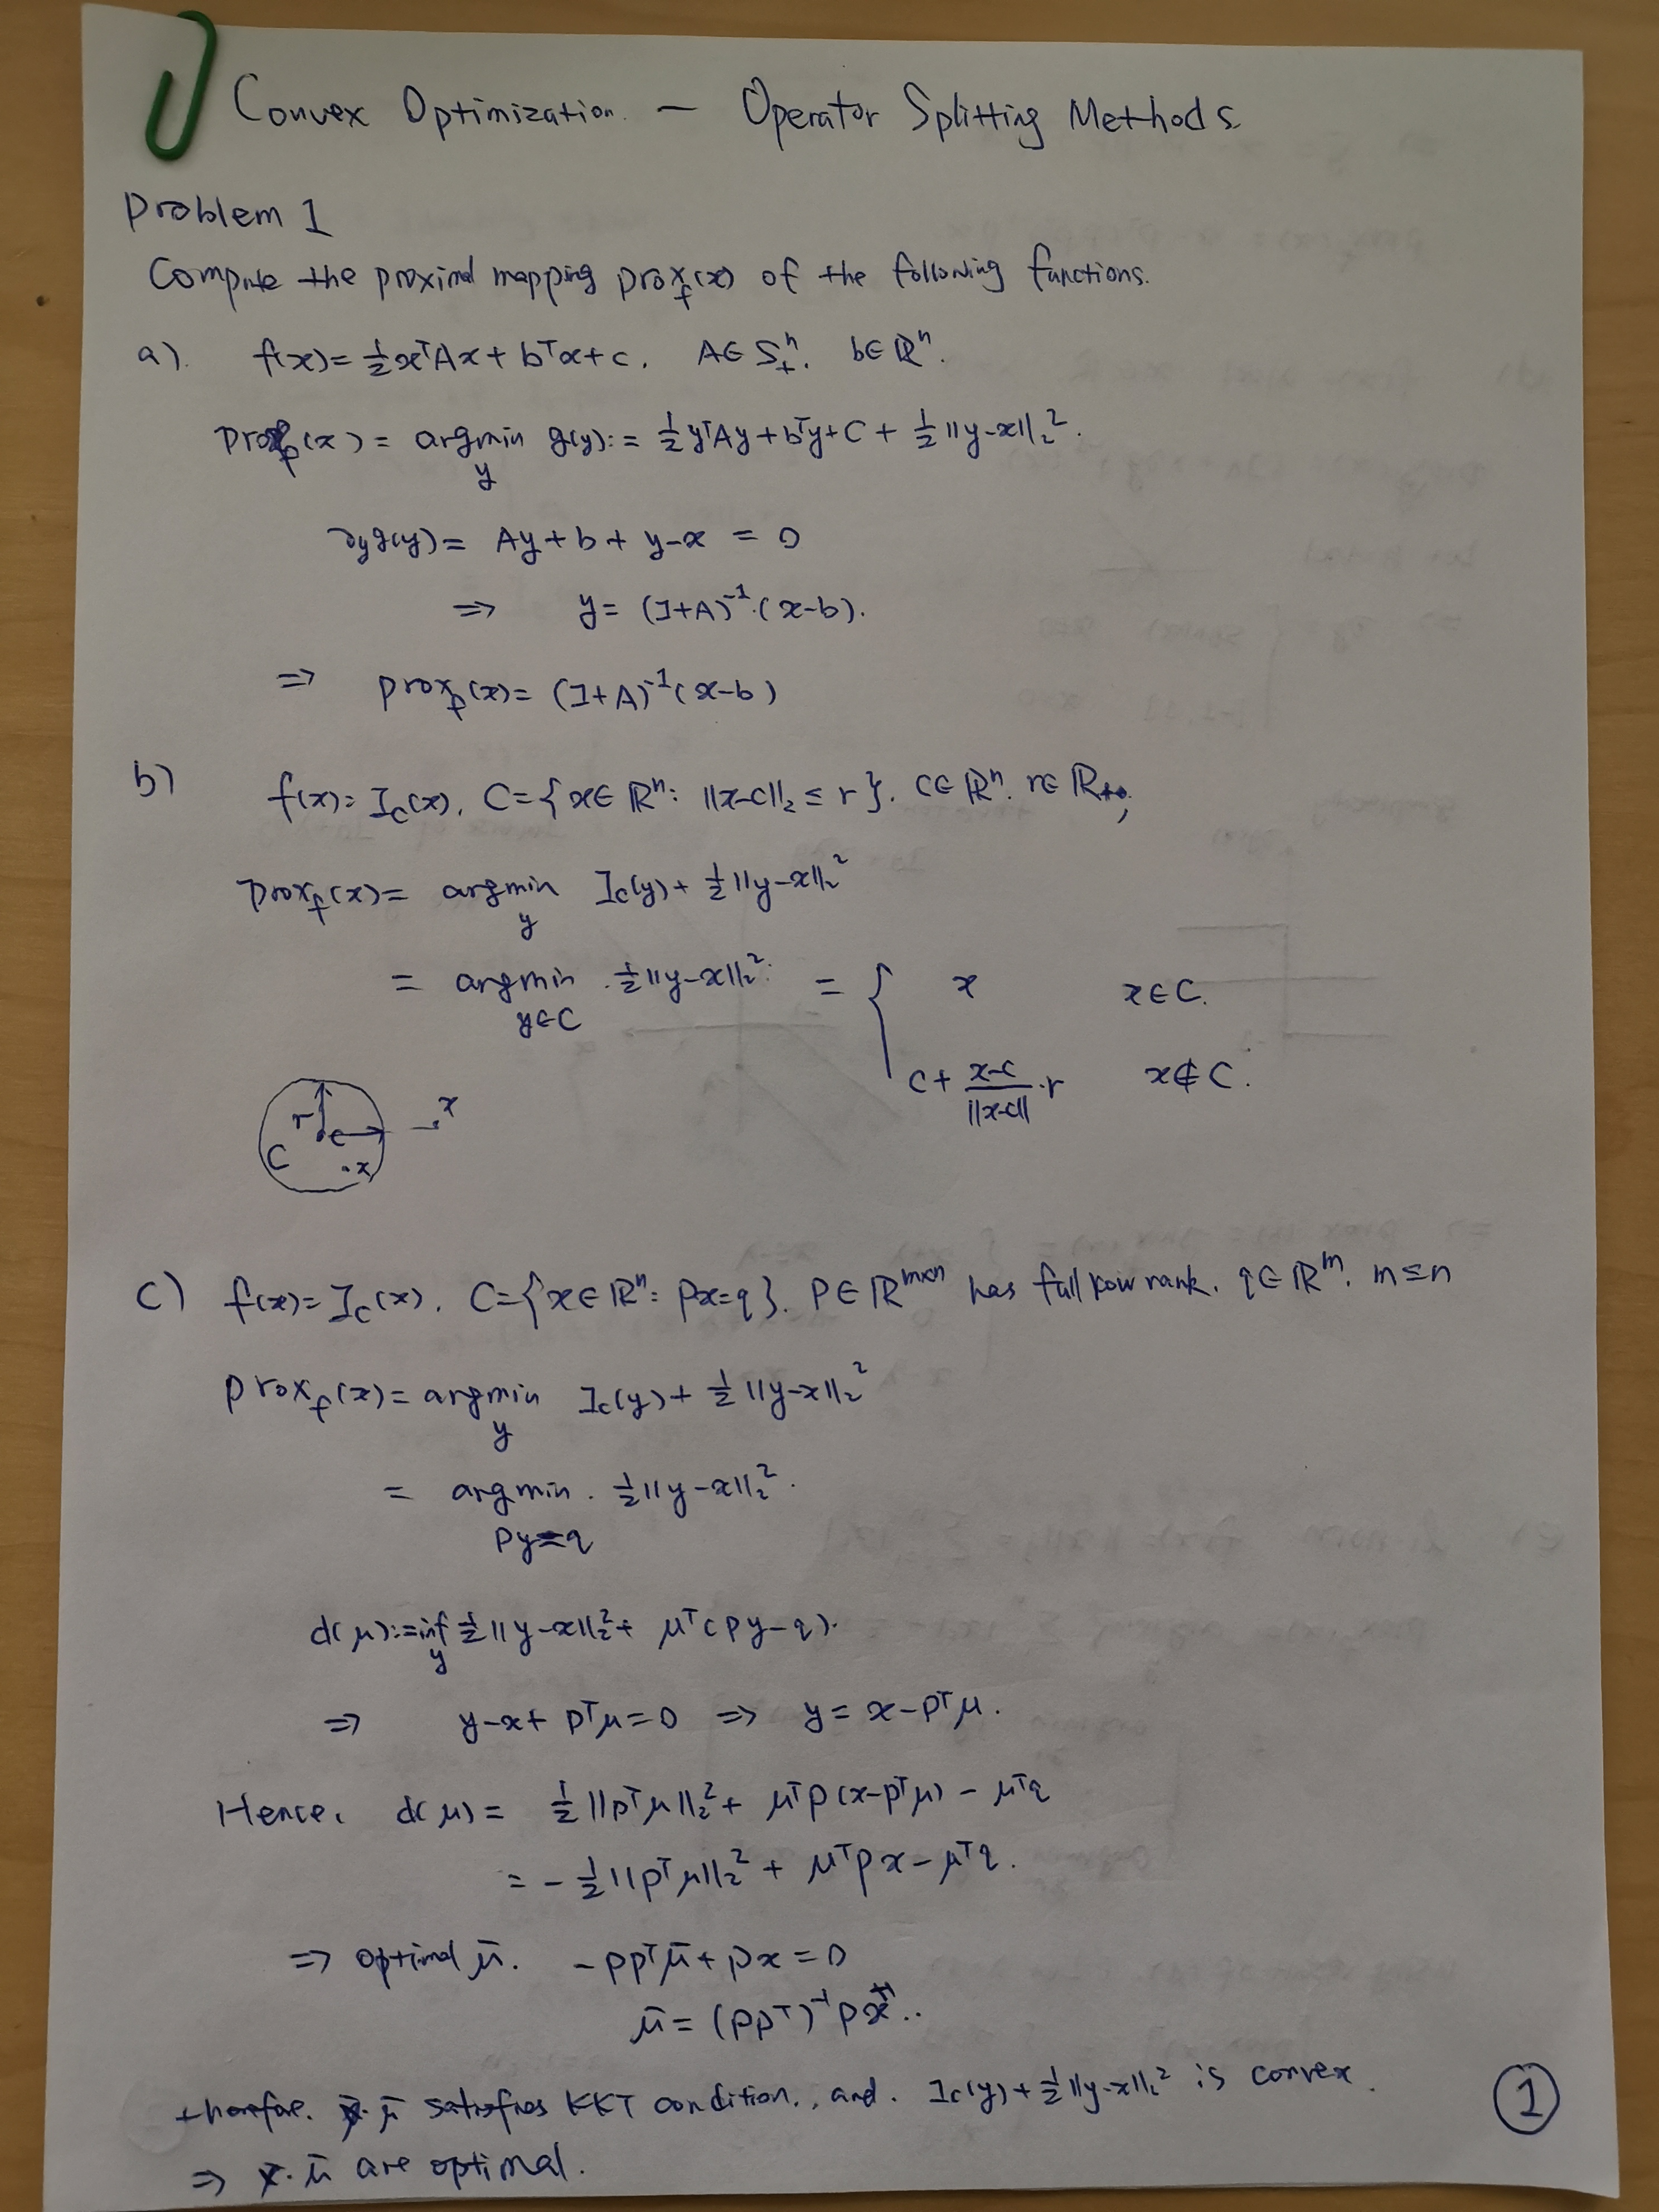 Convex Optimization. — Operator Splitting Methods
Problem 1
Compute the proximal mapping prox_f(x) of the following functions.
a). f(x) = ½xᵀAx + bᵀx + c. A ∈ S₊ⁿ. b ∈ ℝⁿ.
prox_f(x) = argmin_y g(y) := ½yᵀAy + bᵀy + C + ½‖y-x‖₂².
∂_y g(y) = Ay + b + y-x = 0
⇒ y = (I+A)⁻¹·(x-b).
⇒ prox_f(x) = (I+A)⁻¹(x-b)
b) f(x) = I_C(x). C = {x ∈ ℝⁿ: ‖x-c‖₂ ≤ r}. c ∈ ℝⁿ. r ∈ ℝ₊₊
prox_f(x) = argmin_y I_C(y) + ½‖y-x‖₂²
= argmin_{y∈C} ½‖y-x‖₂² = { x x ∈ C.
c + (x-c)/‖x-c‖ · r x ∉ C.
r c x
C · x
c) f(x) = I_C(x). C = {x ∈ ℝⁿ: Px=q}. P ∈ ℝ^{m×n} has full row rank. q ∈ ℝᵐ. m ≤ n
prox_f(x) = argmin_y I_C(y) + ½‖y-x‖₂²
= argmin_{Py=q} ½‖y-x‖₂².
d(μ) := inf_y ½‖y-x‖₂² + μᵀ(Py-q).
⇒ y-x + Pᵀμ = 0 ⇒ y = x-Pᵀμ.
Hence, d(μ) = ½‖Pᵀμ‖₂² + μᵀP(x-Pᵀμ) - μᵀq
= -½‖Pᵀμ‖₂² + μᵀPx - μᵀq.
⇒ optimal μ̄. -PPᵀμ̄ + Px = 0
μ̄ = (PPᵀ)⁻¹Px..
therefore. μ̄ satisfies KKT condition., and. I_C(y) + ½‖y-x‖₂² is convex.
⇒ x̄. μ̄ are optimal.
1